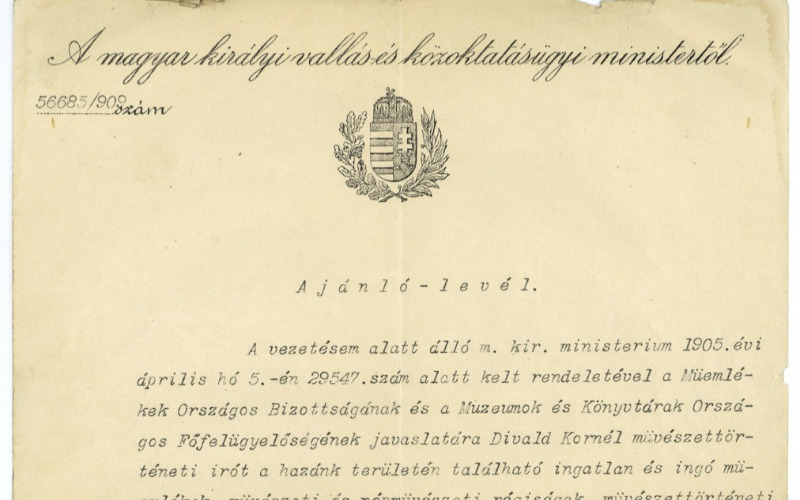 A magyar királyi vallás és közoktatásügyi ministertől.
56685/909 szám
Ajánló-levél.
A vezetésem alatt álló m. kir. ministerium 1905.évi
április hó 5.-én 29547.szám alatt kelt rendeletével a Müemlé-
kek Országos Bizottságának és a Muzeumok és Könyvtárak Orszá-
gos Főfelügyelőségének javaslatára Divald Kornél müvészettör-
téneti irót a hazánk területén található ingatlan és ingó mü-
emlékek, müvészeti és népmüvészeti régiségek, müvészettörténeti